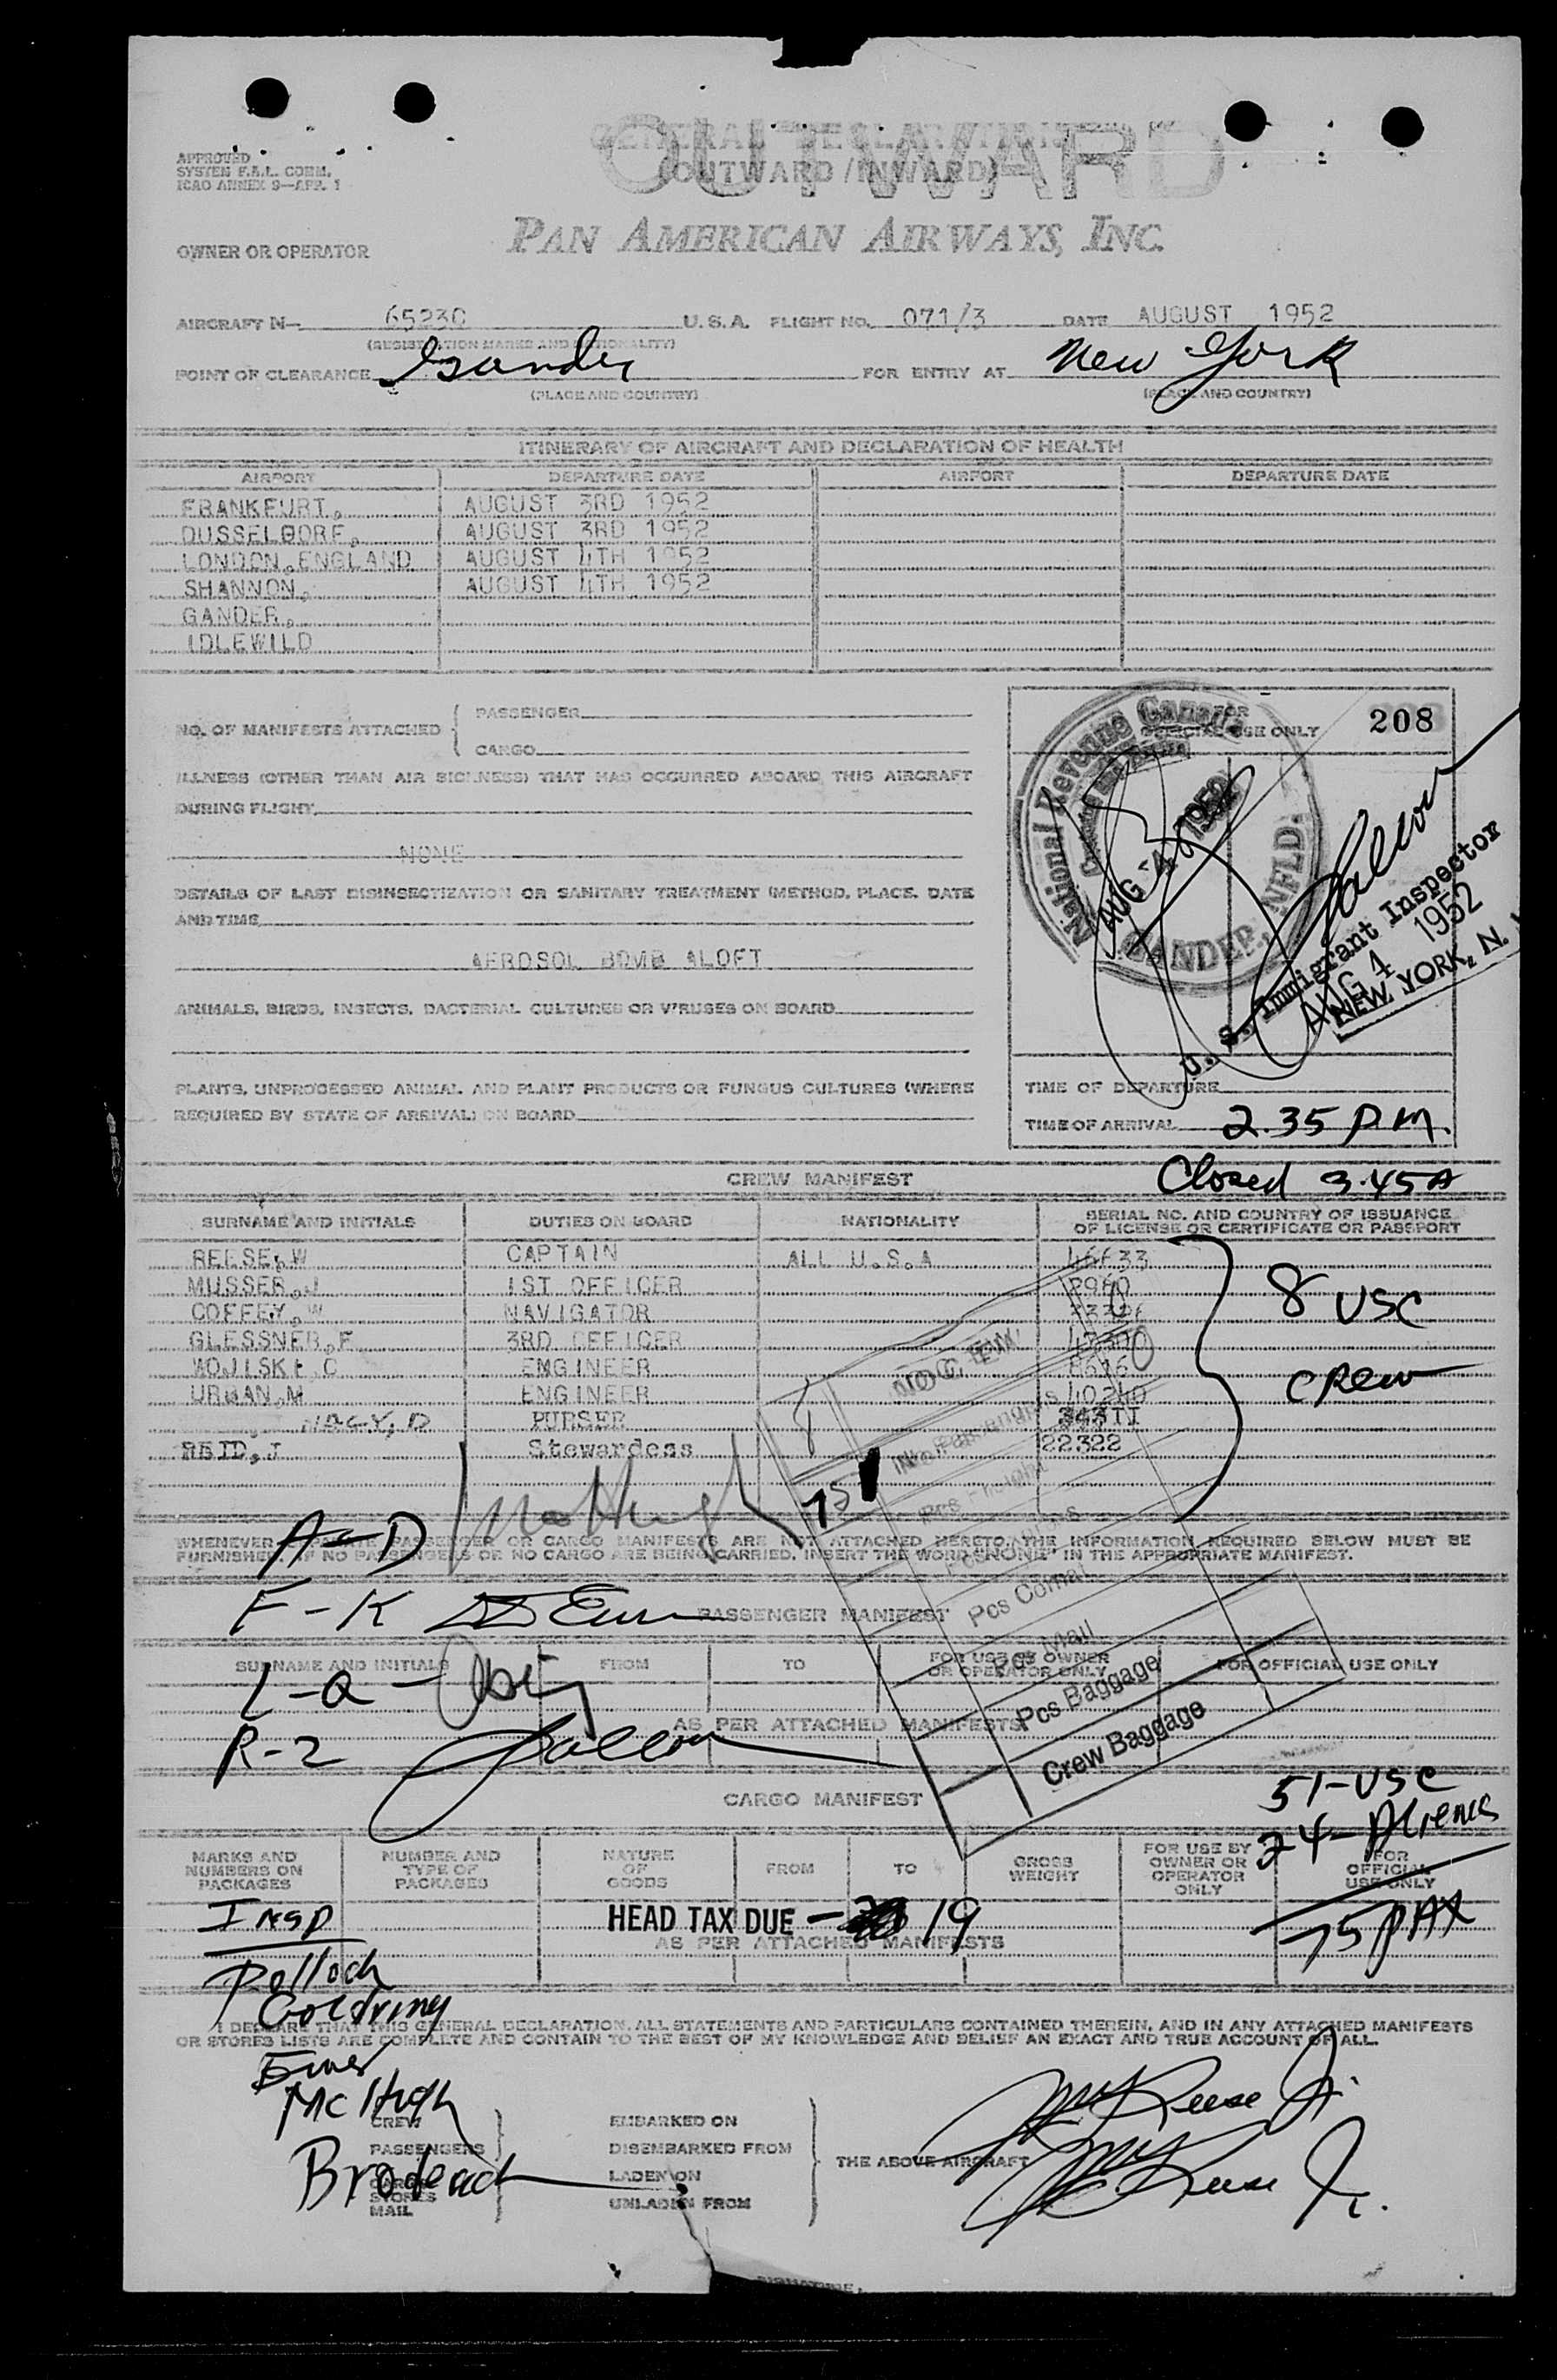 GENERAL DECLARATION
(OUTWARD/INWARD)
OUTWARD
APPROVED
SYSTEM F.A.L. COMM.
ICAO ANNEX 9—APP. 1
OWNER OR OPERATOR
PAN AMERICAN AIRWAYS, INC.
AIRCRAFT N— U.S.A. FLIGHT NO. 071/3 DATE AUGUST 1952
(REGISTRATION MARKS AND NATIONALITY)
POINT OF CLEARANCE Gander FOR ENTRY AT New York
(PLACE AND COUNTRY) (PLACE AND COUNTRY)
ITINERARY OF AIRCRAFT AND DECLARATION OF HEALTH
AIRPORT DEPARTURE DATE AIRPORT DEPARTURE DATE
FRANKFURT, AUGUST 3RD 1952
DUSSELDORF, AUGUST 3RD 1952
LONDON, ENGLAND AUGUST 4TH 1952
SHANNON, AUGUST 4TH 1952
GANDER,
IDLEWILD
NO. OF MANIFESTS ATTACHED { PASSENGER
CARGO
ILLNESS (OTHER THAN AIR SICKNESS) THAT HAS OCCURRED ABOARD THIS AIRCRAFT
DURING FLIGHT
NONE
DETAILS OF LAST DISINSECTIZATION OR SANITARY TREATMENT (METHOD, PLACE, DATE
AND TIME
AEROSOL BOMB ALOFT
ANIMALS, BIRDS, INSECTS, BACTERIAL CULTURES OR VIRUSES ON BOARD
PLANTS, UNPROCESSED ANIMAL AND PLANT PRODUCTS OR FUNGUS CULTURES (WHERE
REQUIRED BY STATE OF ARRIVAL) ON BOARD
FOR
OFFICIAL USE ONLY 208
National Revenue Canada
AUG -4 1952
GANDER, NFLD.
U. S. Immigrant Inspector
AUG 4 1952
NEW YORK, N.
TIME OF DEPARTURE
TIME OF ARRIVAL 2.35 P.M.
Closed 3.45
CREW MANIFEST
SURNAME AND INITIALS DUTIES ON BOARD NATIONALITY SERIAL NO. AND COUNTRY OF ISSUANCE
OF LICENSE OR CERTIFICATE OR PASSPORT
REESE, W CAPTAIN ALL U.S.A
MUSSER, J 1ST OFFICER
COFFEY, W NAVIGATOR
GLESSNER, F 3RD OFFICER
WOJISKI, C ENGINEER
URBAN, M ENGINEER
PURSER
REID, J Stewardess 22322
8 USC
Crew
No. Passengers
Pcs Freight
Pcs Comat
Pcs Mail
Pcs Baggage
Crew Baggage
A-D
WHENEVER SEPARATE PASSENGER OR CARGO MANIFESTS ARE NOT ATTACHED HERETO, THE INFORMATION REQUIRED BELOW MUST BE
FURNISHED. IF NO PASSENGERS OR NO CARGO ARE BEING CARRIED, INSERT THE WORD "NONE" IN THE APPROPRIATE MANIFEST.
PASSENGER MANIFEST
SURNAME AND INITIALS FROM TO FOR USE BY OWNER
OR OPERATOR ONLY FOR OFFICIAL USE ONLY
L-Q
AS PER ATTACHED MANIFESTS
51-USC
CARGO MANIFEST
24-Aliens
MARKS AND
NUMBERS ON
PACKAGES
NUMBER AND
TYPE OF
PACKAGES
NATURE
OF
GOODS
FROM
TO
GROSS
WEIGHT
FOR USE BY
OWNER OR
OPERATOR
ONLY
FOR
OFFICIAL
USE ONLY
Insp
HEAD TAX DUE — 19
75 PAX
AS PER ATTACHED MANIFESTS
Goldring
I DECLARE THAT THIS GENERAL DECLARATION, ALL STATEMENTS AND PARTICULARS CONTAINED THEREIN, AND IN ANY ATTACHED MANIFESTS
OR STORES LISTS ARE COMPLETE AND CONTAIN TO THE BEST OF MY KNOWLEDGE AND BELIEF AN EXACT AND TRUE ACCOUNT OF ALL.
McHugh
CREW
PASSENGERS
CARGO
STORES
MAIL
EMBARKED ON
DISEMBARKED FROM
LADEN ON
UNLADEN FROM
THE ABOVE AIRCRAFT